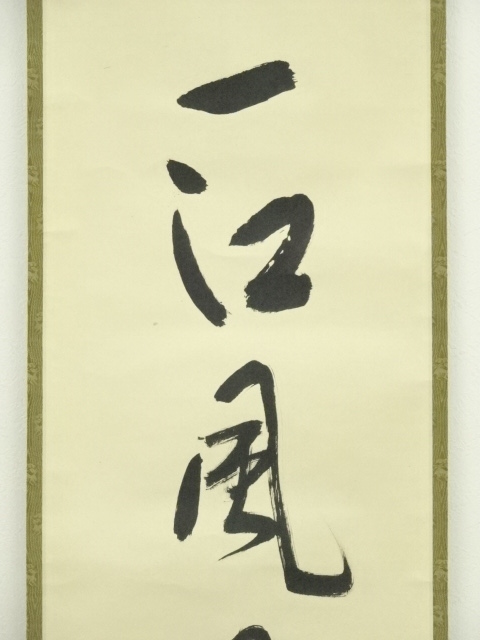 一江風